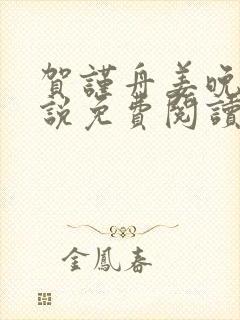 賀謹舟姜晚
說免費閱讀
金鳳春